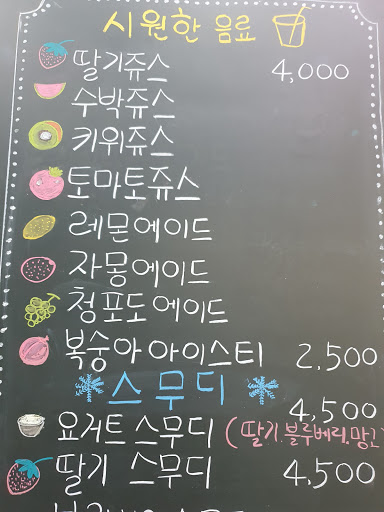 시원한 음료
딸기쥬스 4,000
수박쥬스
키위쥬스
토마토쥬스
레몬에이드
자몽에이드
청포도에이드
복숭아아이스티 2,500
스무디
4,500
요거트스무디 (딸기.블루베리.망고
딸기 스무디 4,500